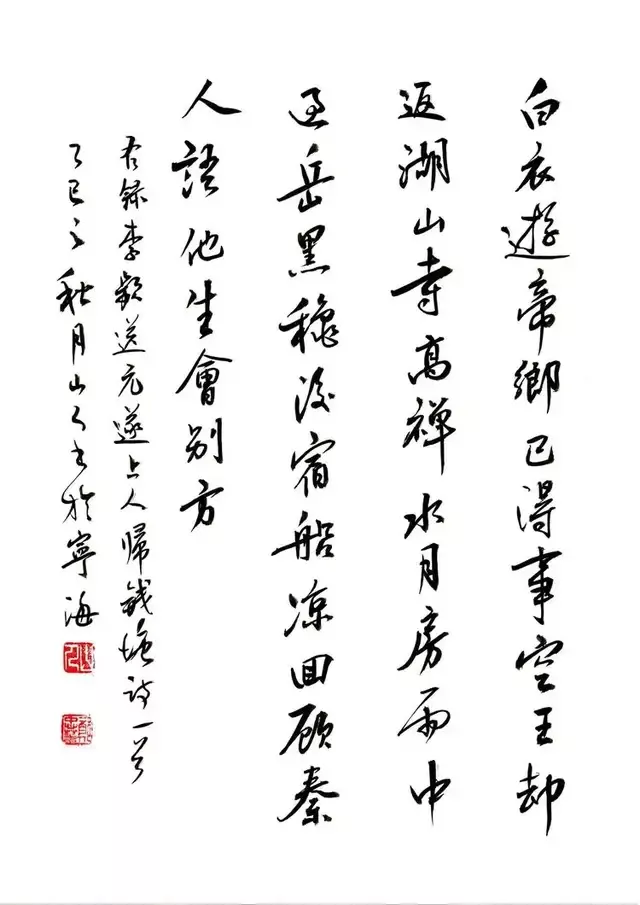 白衣遊帝鄉已得事空王却
返湖山寺高禪水月房雨中
過岳黑穐後宿船凉回顾秦
人語他生會别方
右録李頻送元遂上人歸錢塘詩一首
乙巳之秋月山人书於寧海